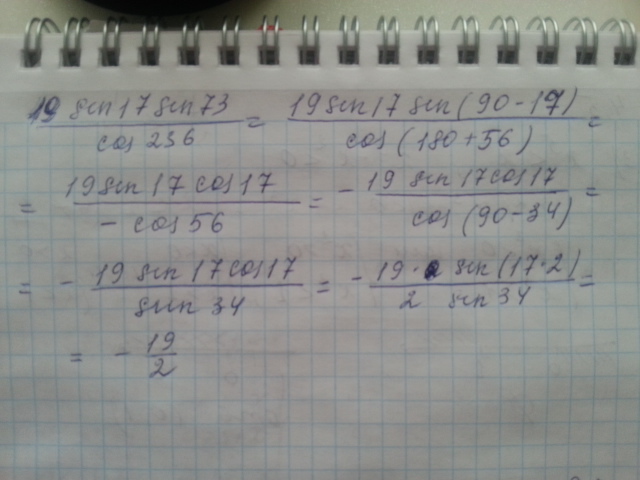 19 sin17 sin73 / cos 236 = 19 sin17 sin(90-17) / cos(180+56) =
= 19 sin 17 cos 17 / - cos 56 = - 19 sin 17 cos 17 / cos(90-34) =
= - 19 sin 17 cos 17 / sin 34 = - 19 · sin(17·2) / 2 sin 34 =
= - 19 / 2